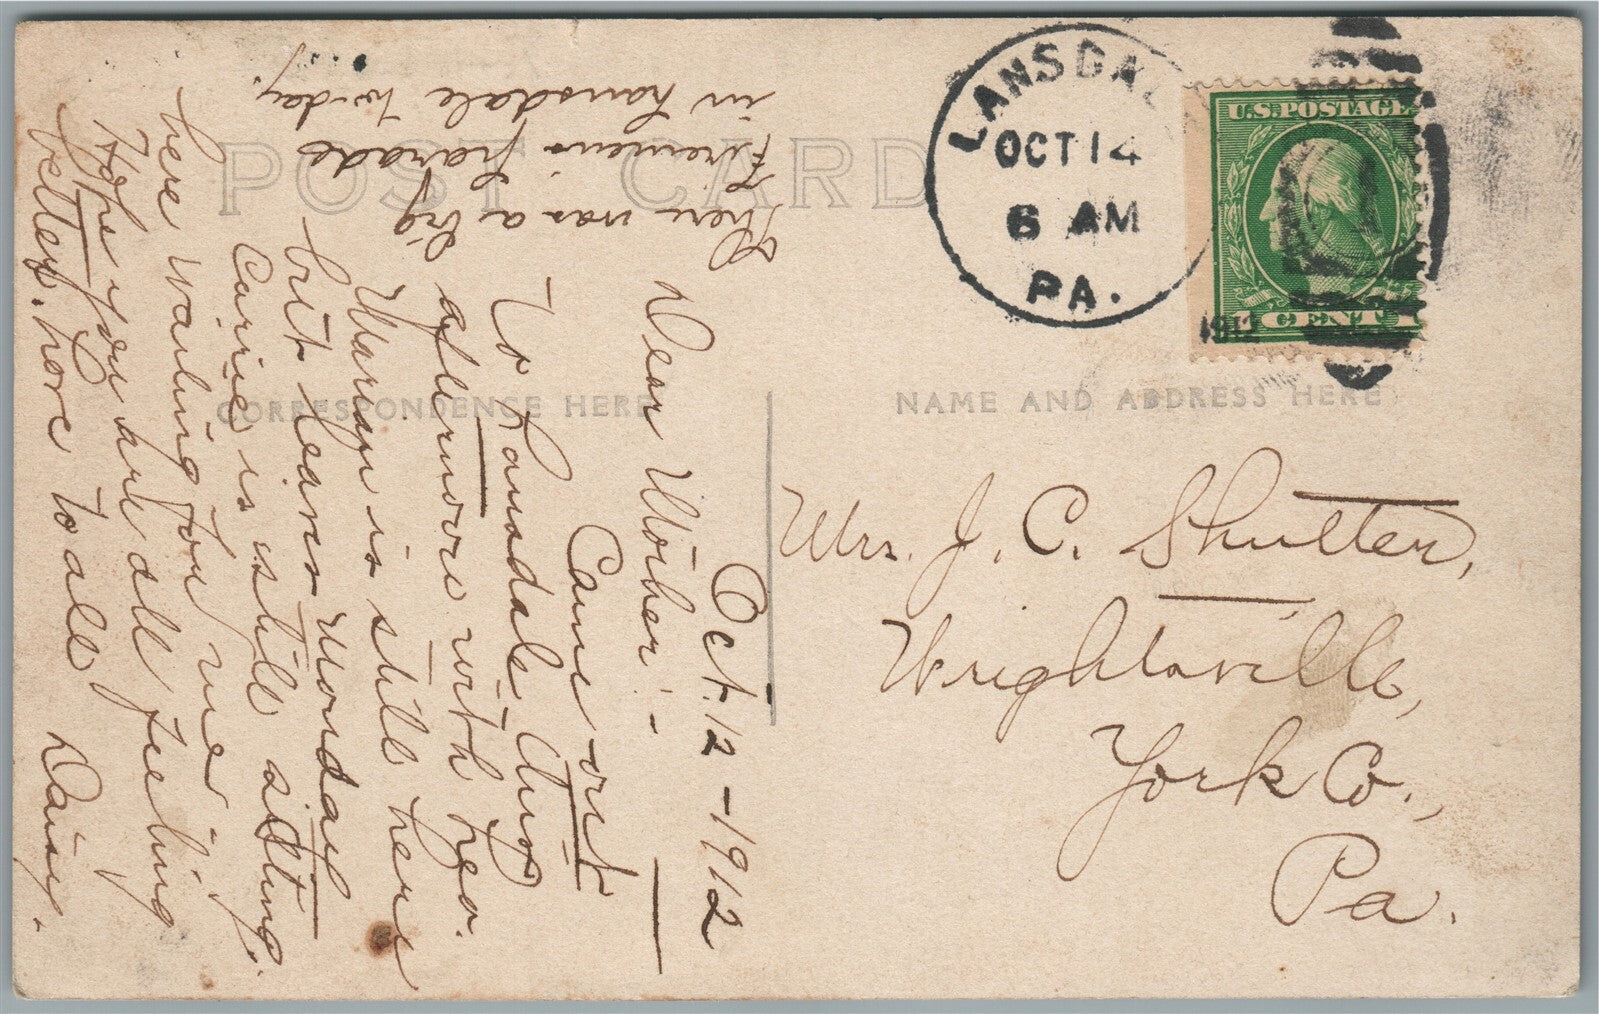 POST CARD
CORRESPONDENCE HERE
NAME AND ADDRESS HERE
LANSDA
OCT 14
6 AM
PA.
1912
U.S. POSTAGE
1 CENT 1
Oct. 12 - 1912
Dear Mother: -
Came out
to Lansdale this
afternoon with Geo.
Marian is still here
but leaves Monday
Carrie is still sitting
here waiting for me
Hope you are all feeling
better. Love to all
Daisy.
There was a big
Firemens parade
in Lansdale to-day.
Mrs. J. C. Shultter,
Wrightsville,
York Co.,
Pa.